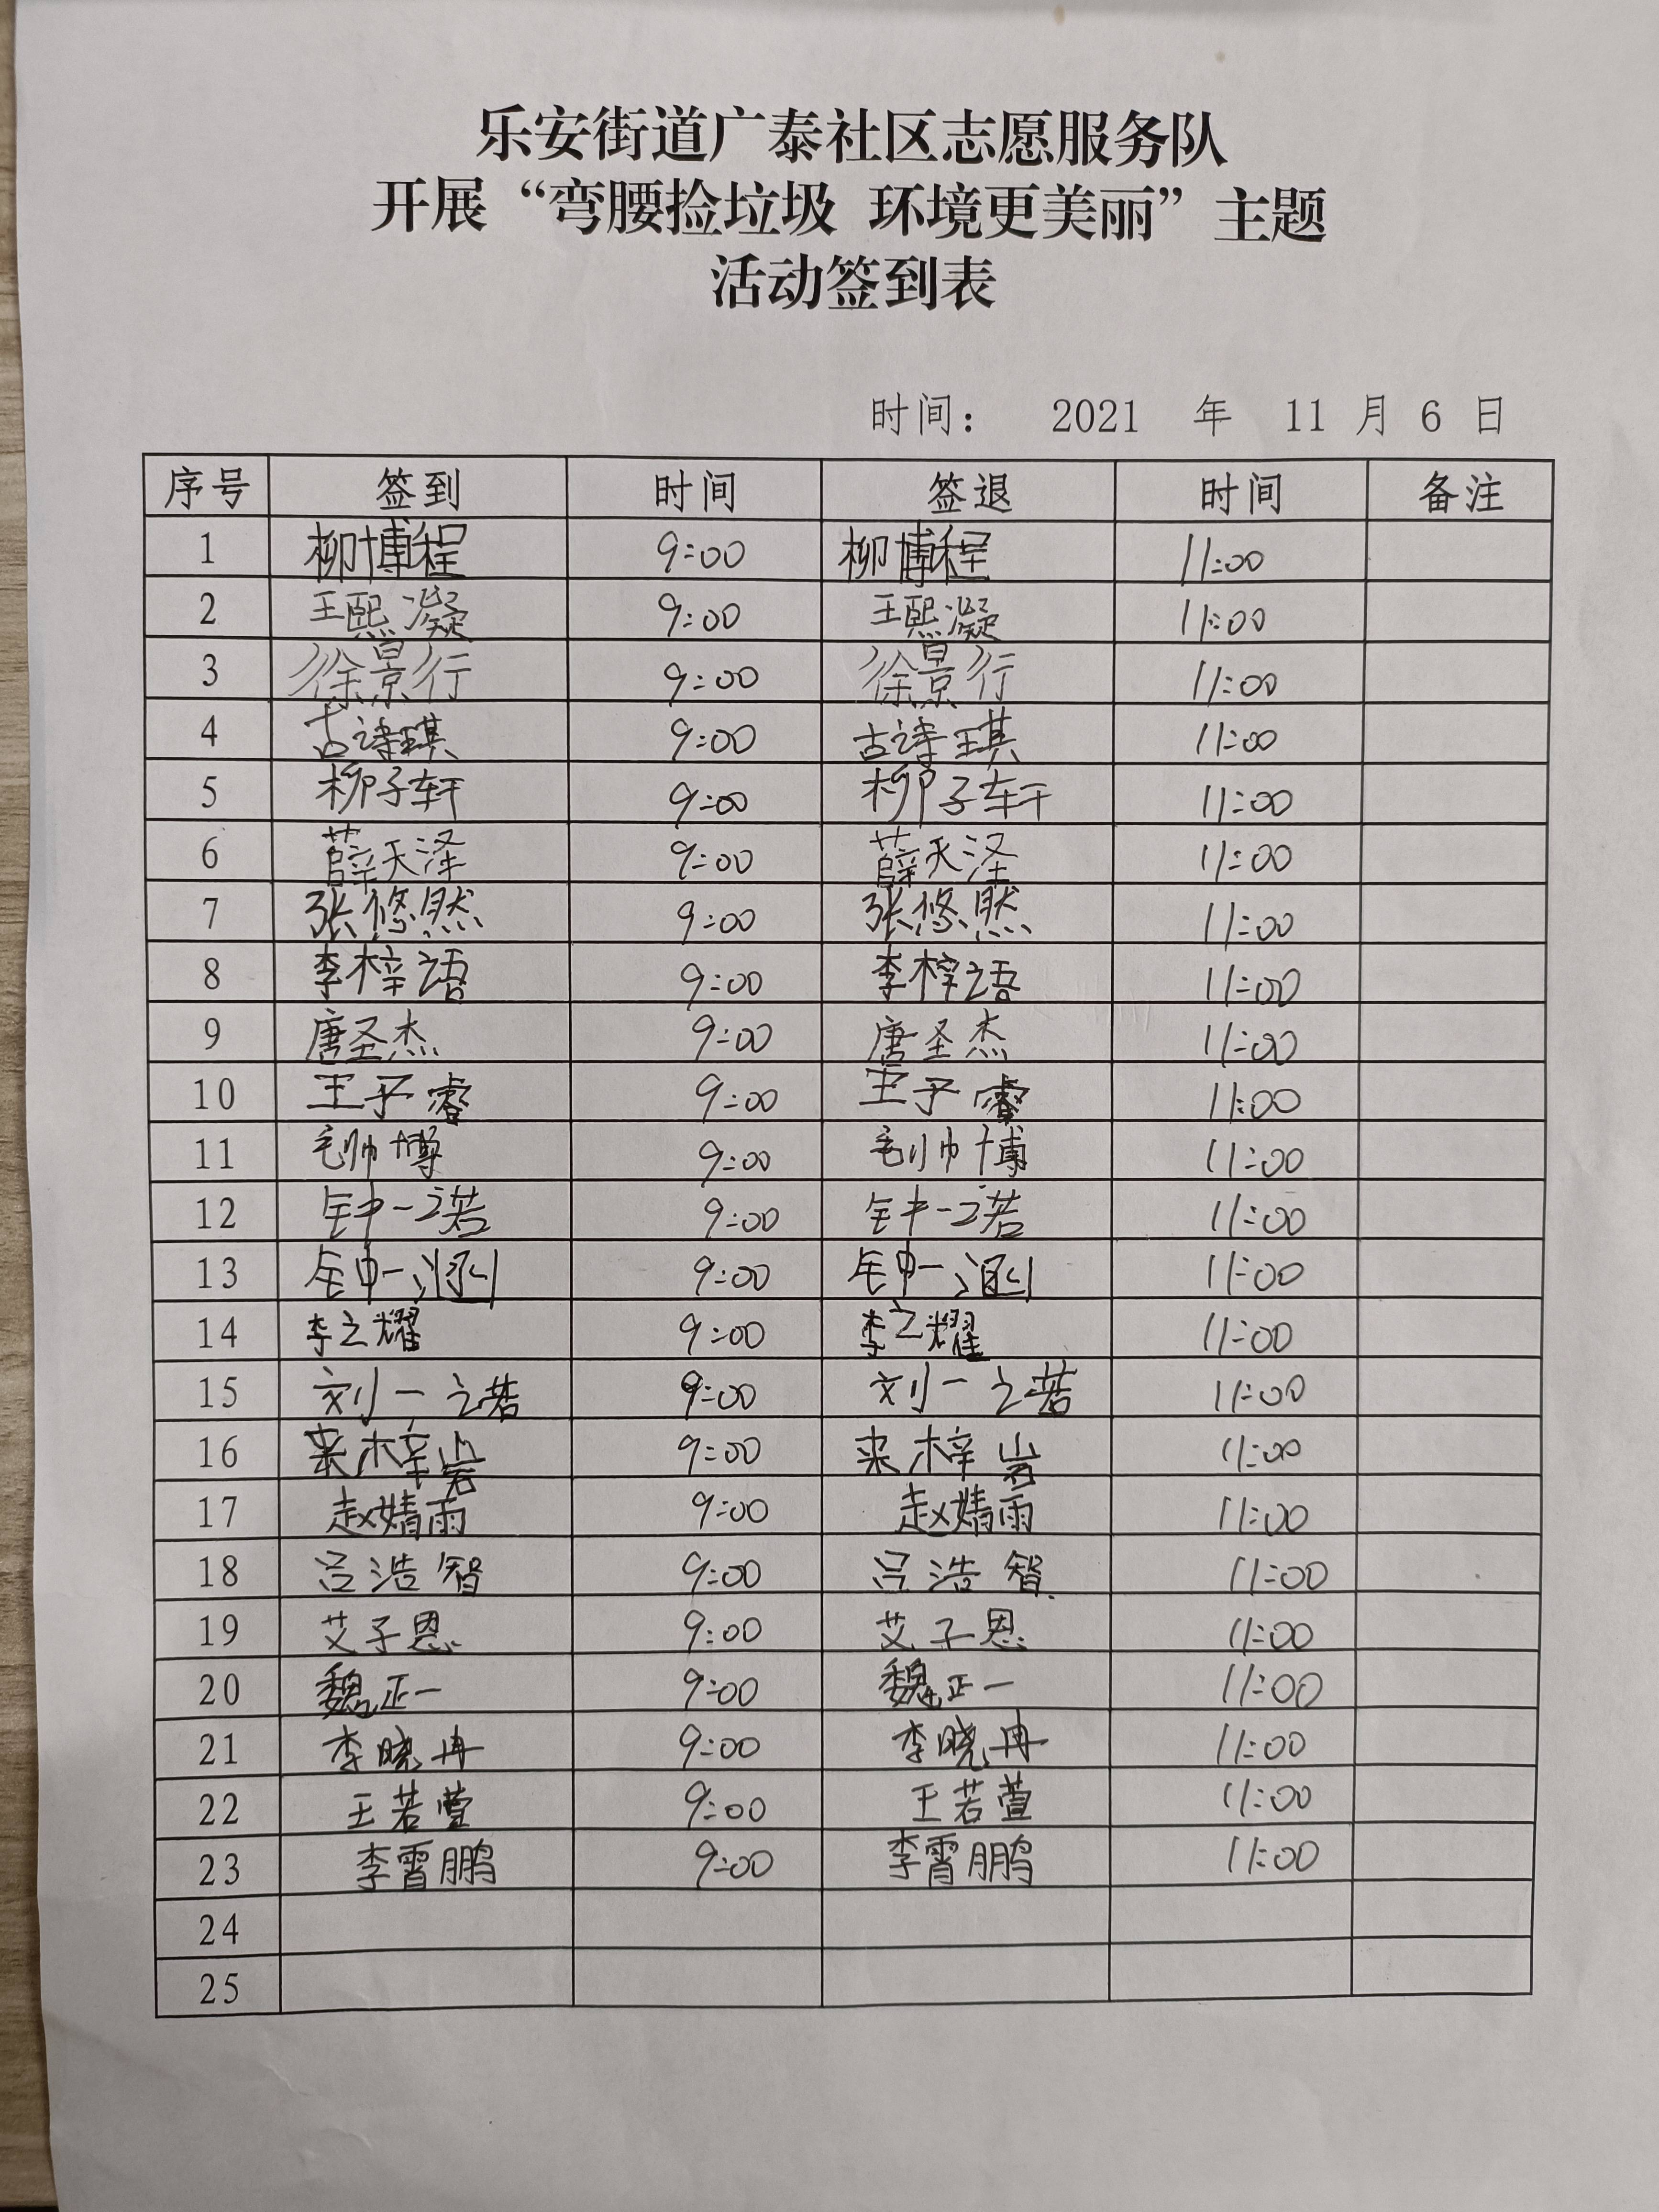 乐安街道广泰社区志愿服务队
开展“弯腰捡垃圾 环境更美丽”主题
活动签到表
时间： 2021 年 11 月 6 日
序号 签到 时间 签退 时间 备注
1 柳博程 9:00 柳博程 11:00
2 王熙凝 9:00 王熙凝 11:00
3 徐景行 9:00 徐景行 11:00
4 古诗琪 9:00 古诗琪 11:00
5 柳子轩 9:00 柳子轩 11:00
6 薛天泽 9:00 薛天泽 11:00
7 张悠然 9:00 张悠然 11:00
8 李梓语 9:00 李梓语 11:00
9 唐圣杰 9:00 唐圣杰 11:00
10 王子睿 9:00 王子睿 11:00
11 毛帅博 9:00 毛帅博 11:00
12 钟一诺 9:00 钟一诺 11:00
13 钟一涵 9:00 钟一涵 11:00
14 李之耀 9:00 李之耀 11:00
15 刘一诺 9:00 刘一诺 11:00
16 来梓岩 9:00 来梓岩 11:00
17 赵婧雨 9:00 赵婧雨 11:00
18 吕浩智 9:00 吕浩智 11:00
19 艾子恩 9:00 艾子恩 11:00
20 魏正一 9:00 魏正一 11:00
21 李晓冉 9:00 李晓冉 11:00
22 王若萱 9:00 王若萱 11:00
23 李霄鹏 9:00 李霄鹏 11:00
24
25